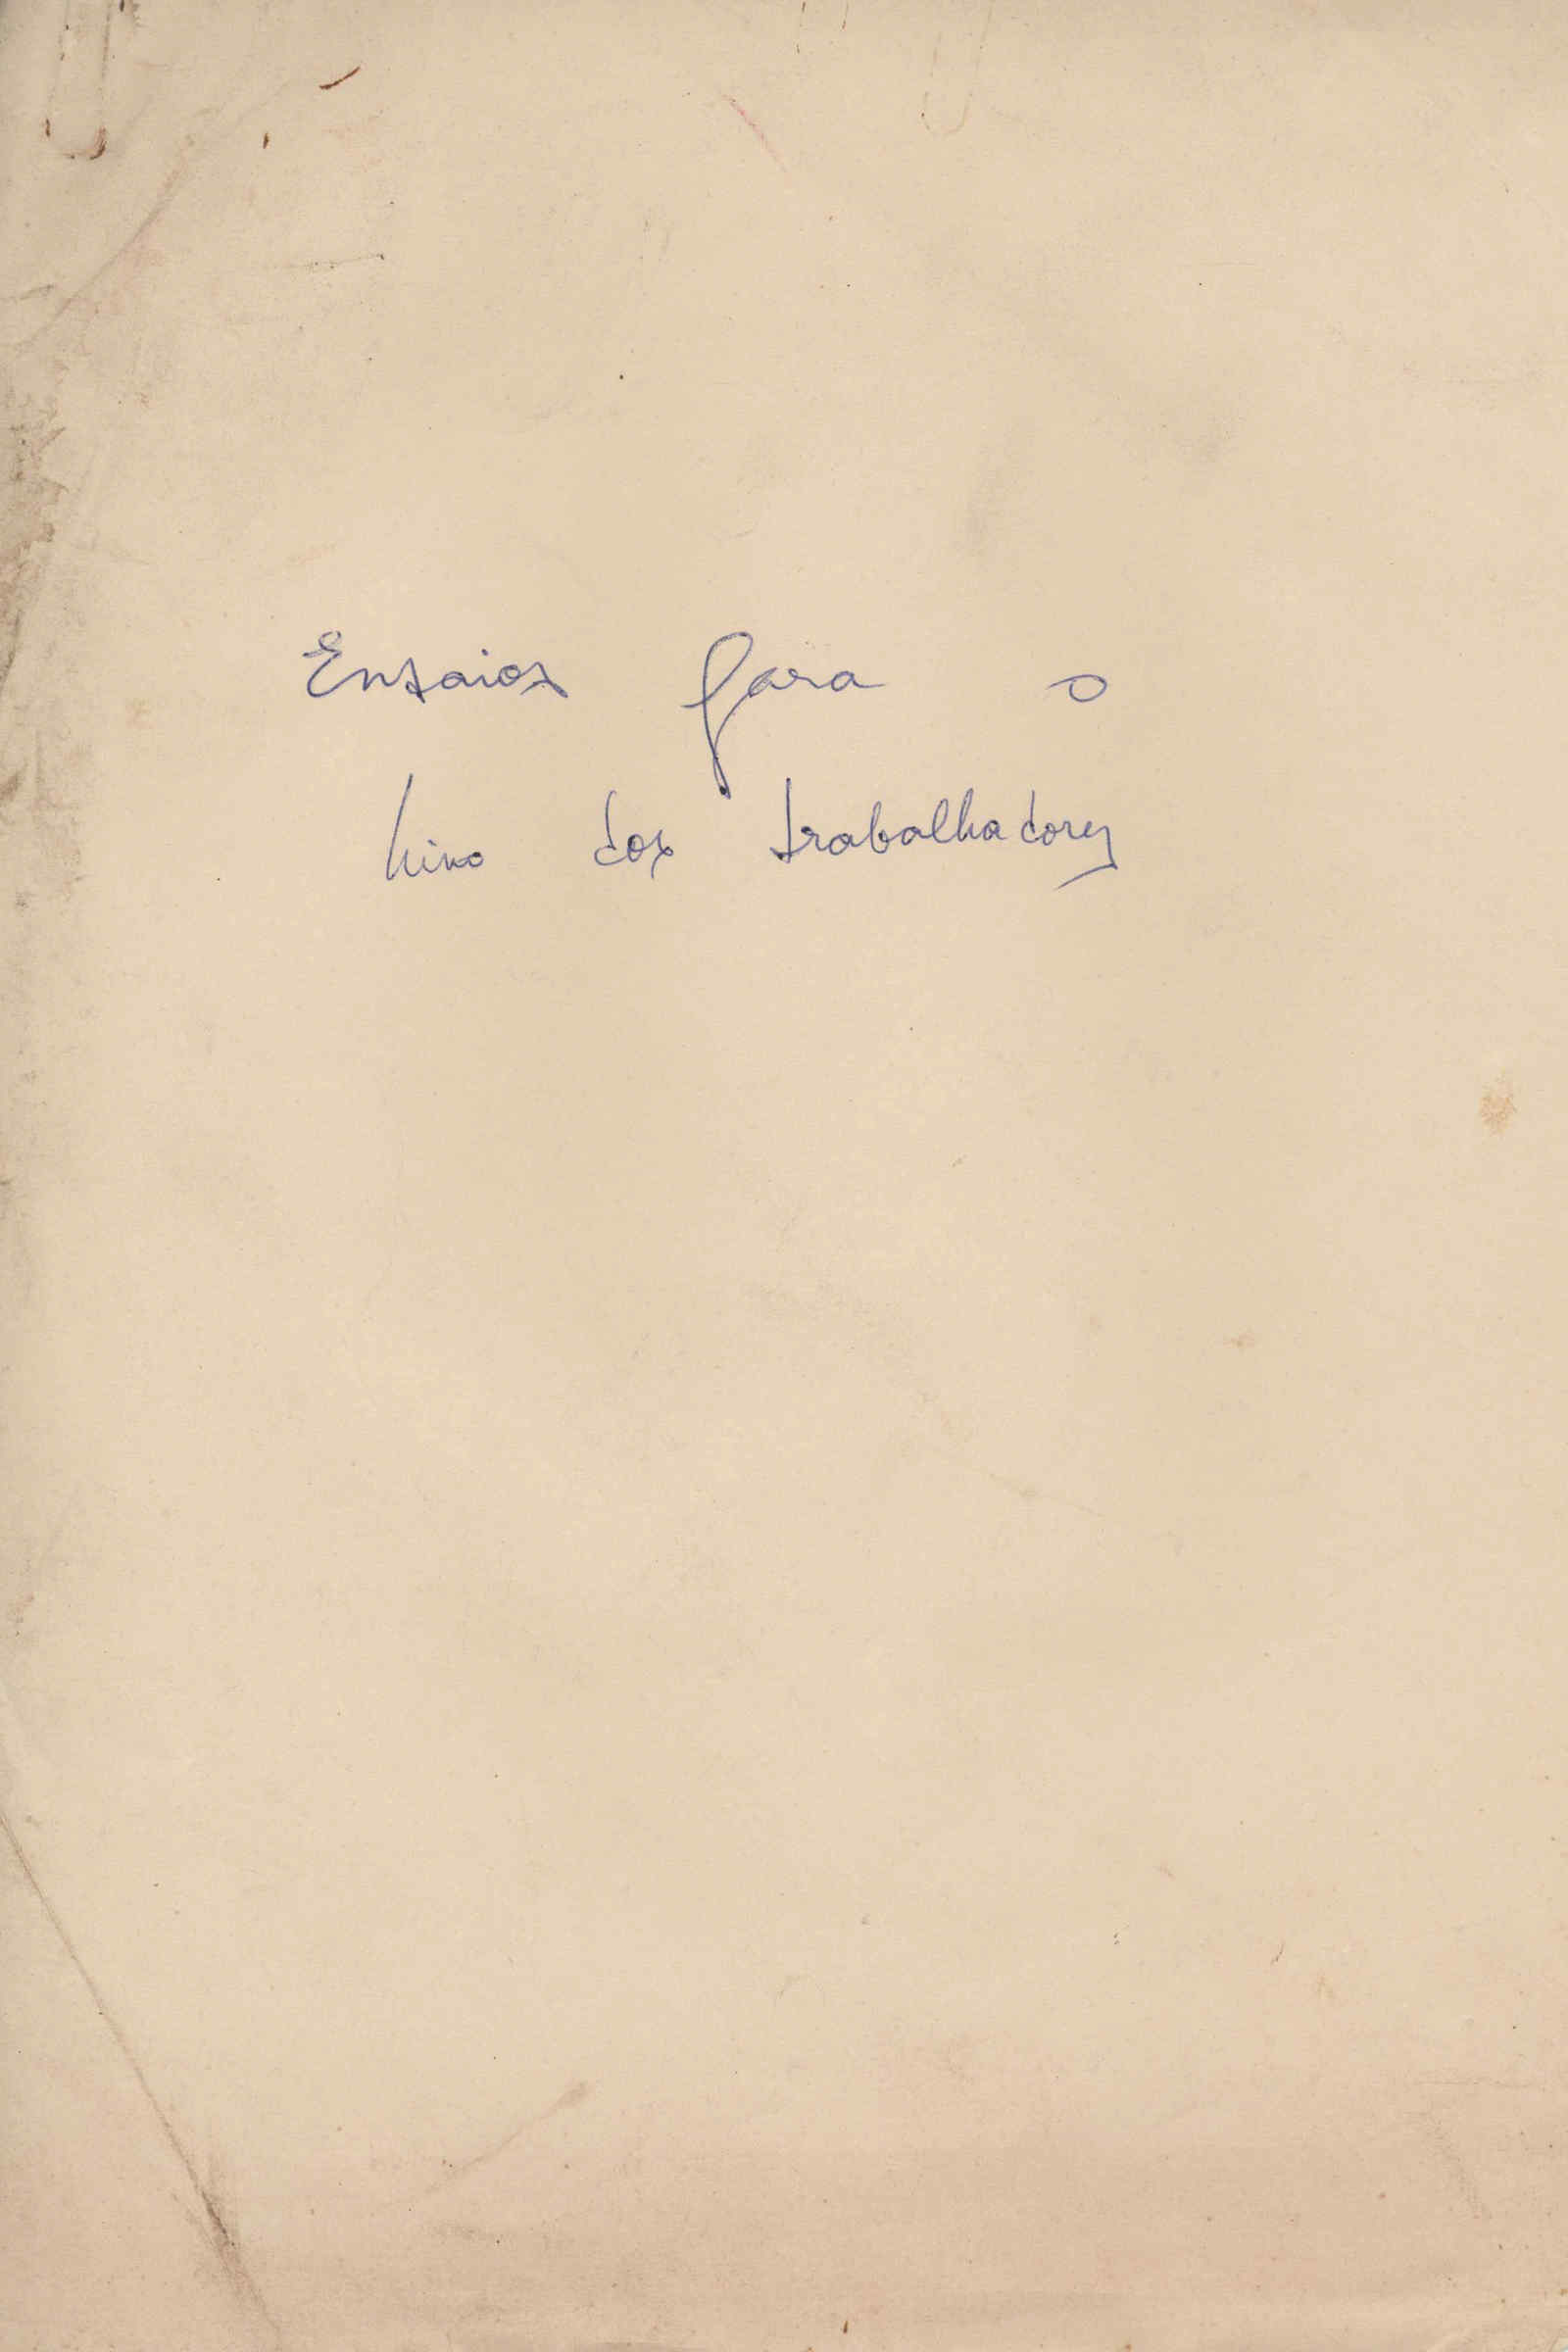 Ensaios para o
hino dos trabalhadores